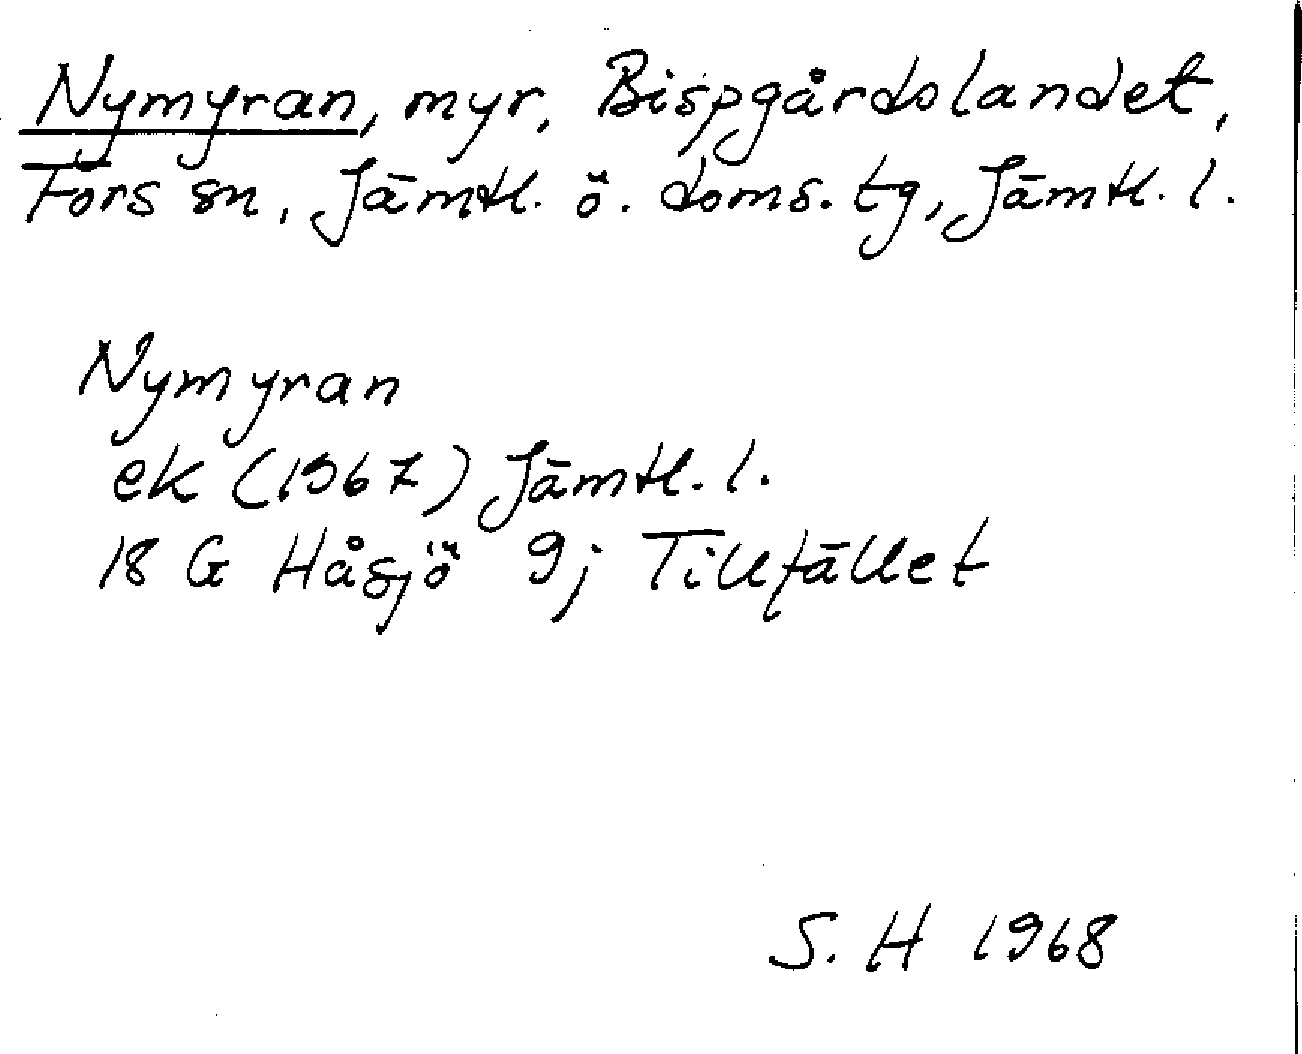 Nymyran, myr, Bispgårdslandet,
Fors sn, Jämtl. ö. doms. tg, Jämtl. l.
Nymyran
ek (1967) Jämtl. l.
18 G Håsjö 9j Tillfället
S. H 1968